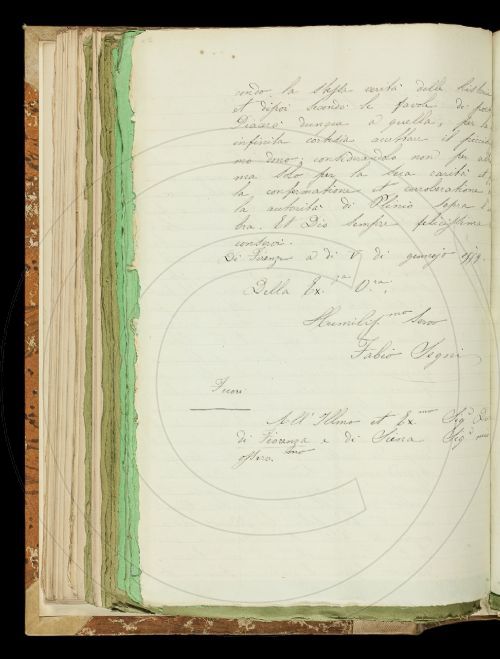 condo la stessa verità della histor
et dipoi secondo le favole di poe
Piaccia dunque a quella, per la
infinita cortesia accettare il picciol
mo dono; considerandolo non per al
ma solo per la sua carità et
la confermatione et corroboratione
la autorità di Plinio sopra
bra. Et Dio sempre felicissima
conservi.
Di Firenze a di V di gennajo
Della Ex.za V.ra
Humiliss.mo Servo
Fabio Segni
Fuori
All' Illmo et Ex.mo Sig.r Du
di Fiorenza e di Siena Sig.r mio
osserv.mo